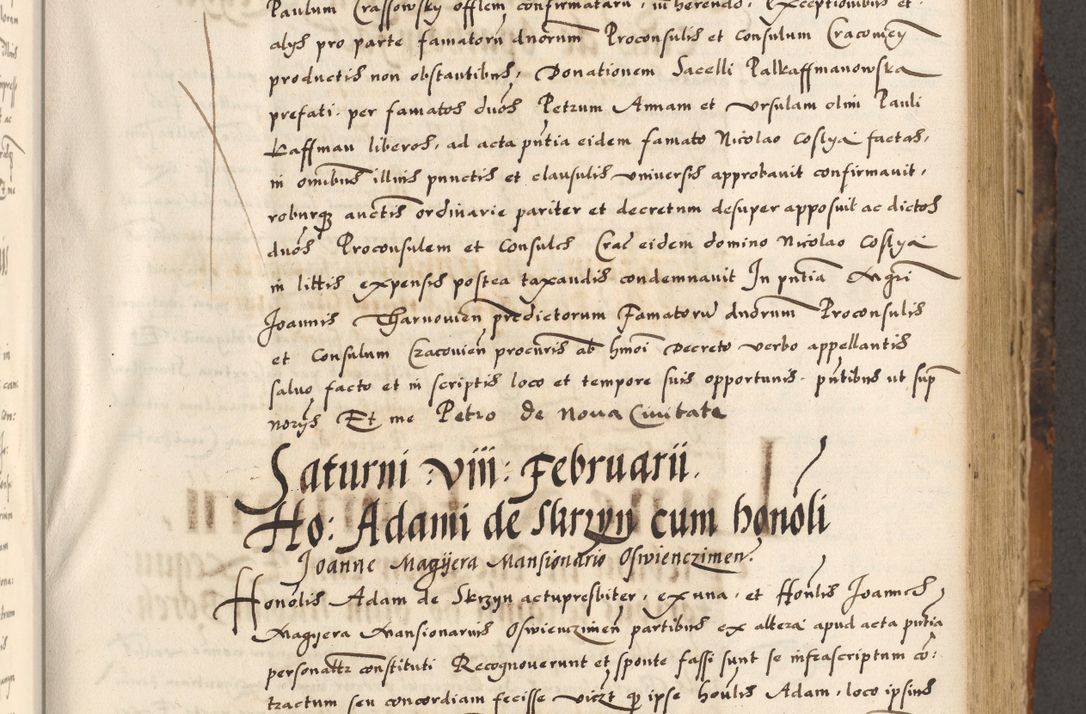 Paulum Crassowsky offlem confirmatarū, in herendo, Exceptionibus et
alys pro parte famatorū dnorum Proconsulis et Consulum Cracovien
productis non obstantibus, Donationem Sacelli Palkaffmanowska
prefati. per famatos duos Petrum Annam et Ursulam olim Pauli
Kaffman liberos, ad acta pntia eidem famato Nicolao Coslya factas,
in omnibus illius punctis et clausulis universis approbavit confirmavit,
roburq auctis ordinarie pariter et decretum desuper apposuit ac dictos
duos Proconsulem et Consules Crac eidem domino Nicolao Coslya
in littis expensis postea taxandis condemnavit In pntia Magri
Joannis Tharnovien predictorum Famatorū dnorum Proconsulis
et Consulum Cracovien procuris ab hmoi Decreto verbo appellantis
salvo facto et in scriptis loco et tempore suis opportunis. pntibus ut sup
norys Et me Petro de Nova Civitate
Saturni :viii: Februarii.
Ho: Adami de Skrzyn cum honoli
Joanne Magyera Mansionario Oswienczimen.
Honolis Adam de Skrzyn actu presbiter, ex una, et Honlis Joannes
Magyera Mansionarius Oswienczimen partibus ex altera apud acta pntia
personaltr constituti Recognoverunt et sponte fassi sunt se infrascriptum cō:
tractum seu concordiam fecisse vidzt q ipse honlis Adam, loco ipsius